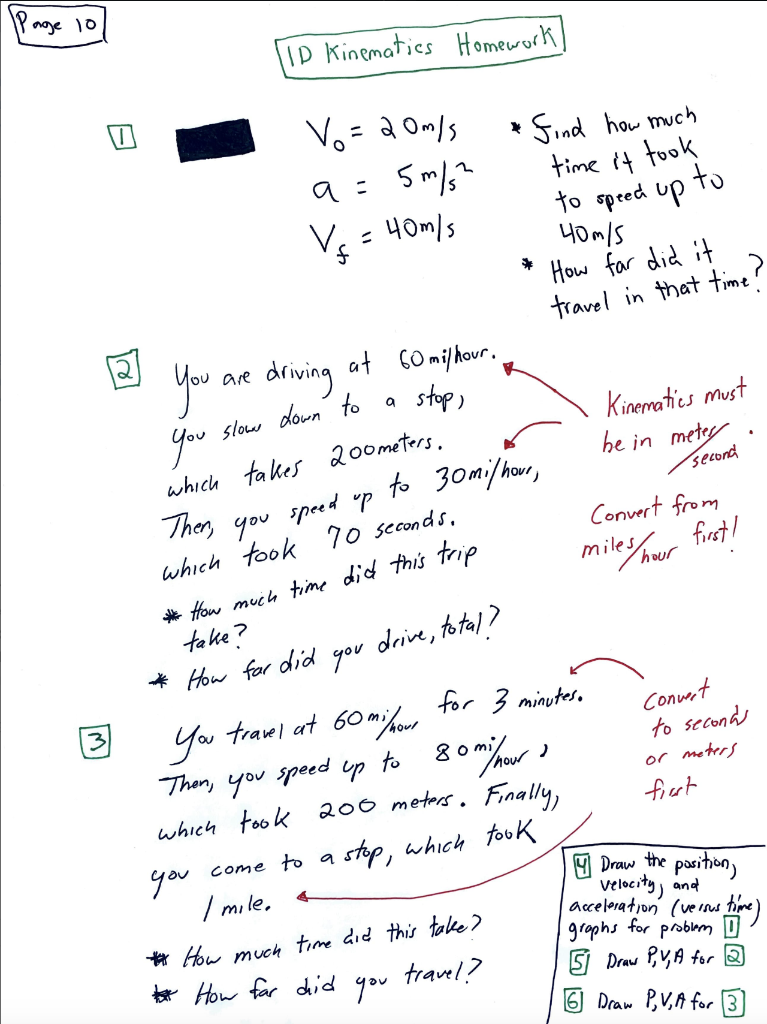 Page 10
1D Kinematics Homework
1
V₀ = 20m/s
a = 5m/s²
V_f = 40m/s
* Find how much
time it took
to speed up to
40m/s
* How far did it
travel in that time?
2
You are driving at 60mi/hour.
You slow down to a stop,
which takes 200meters.
Then, you speed up to 30mi/hour,
which took 70 seconds.
* How much time did this trip
take?
* How far did you drive, total?
Kinematics must
be in meter/second.
Convert from
miles/hour first!
3
You travel at 60mi/hour for 3 minutes.
Then, you speed up to 80mi/hour,
which took 200 meters. Finally,
you come to a stop, which took
1 mile.
* How much time did this take?
* How far did you travel?
Convert
to seconds
or meters
first
4 Draw the position,
velocity, and
acceleration (versus time)
graphs for problem 1
5 Draw P,V,A for 2
6 Draw P,V,A for 3